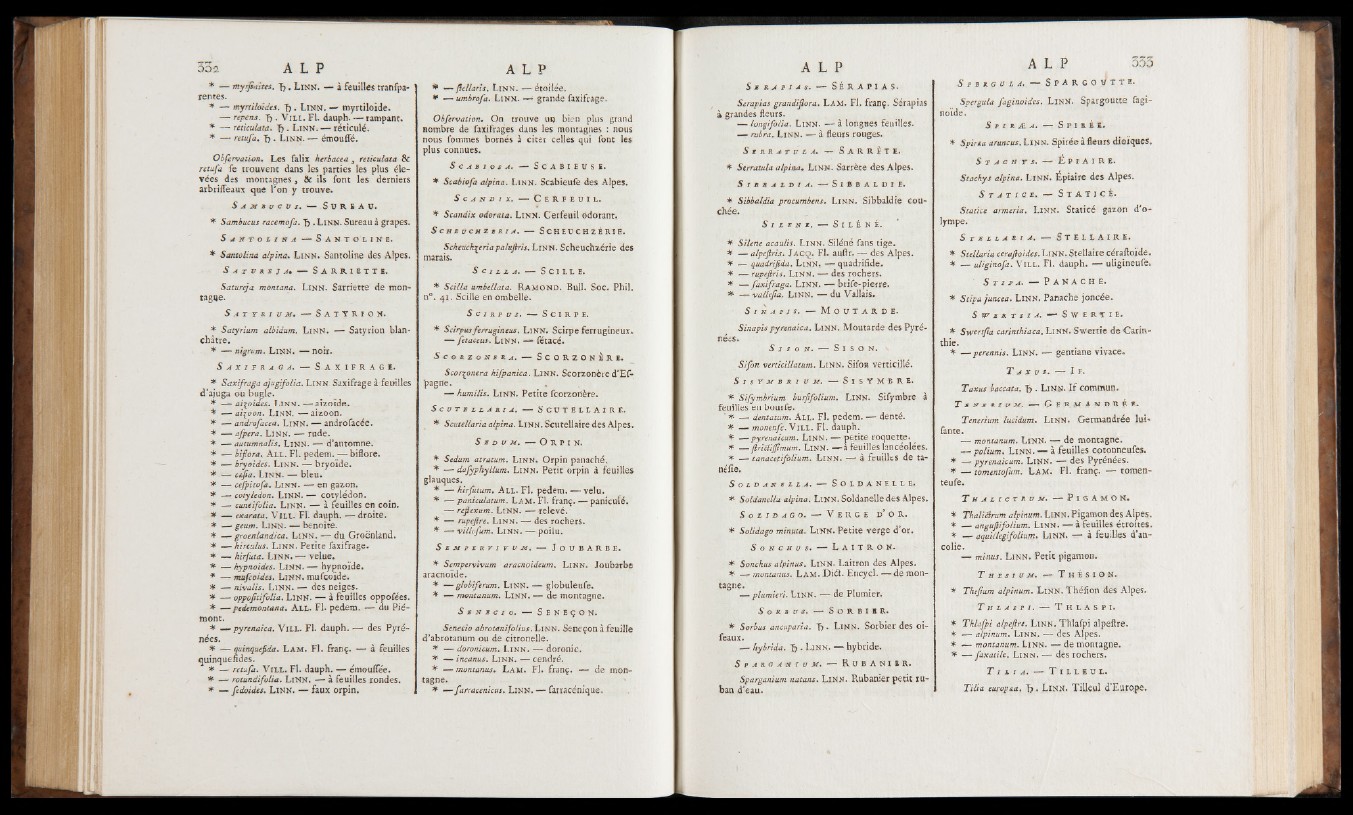 332 A L P
* — myrſinites. ♄. LINN. — à feuilles tranſpa-
rentes.
* — myrtiloides. ♄. LINN. — myrtiloïde.
— repens. ♄. VILL. Fl. dauph. — rampant.
* — reticulata. ♄. LINN. — réticulé.
* — retuſa. ♄. LINN. — émouſſé.
Obſervation. Les ſalix herbacea, reticulata &
retuſa ſe trouvent dans les parties les plus éle-
vées des montagnes, & ils ſont les derniers
arbriſſeaux que l'on y trouve.
SAMBUCUS. — SUREAU.
* Sambucus racemoſa. ♄. LINN. Sureau à grapes.
SANTOLINA — SANTOLINE.
* Santolina alpina. LINN. Santoline des Alpes.
SATUREJA. — SARRIETTE.
Satureja montana. LINN. Sarriette de mon-
tagne.
SATYRIUM. — SATYRION.
* Satyrium albidum. LINN. — Satyrion blan-
châtre.
* — nigrum. LINN. — noir.
SAXIFRAGA. — SAXIFRAGE.
* Saxifraga ajugifolia. LINN. Saxifrage à feuilles
d'ajuga ou bugle.
* — aizoides. LINN. — aizoïde.
* — aizoon. LINN. — aizoon.
* — androſacea. LINN. — androſacée.
* — aſpera. LINN. — rude.
* — autumnalis. LINN. — d'automne.
* — biflora. ALL. Fl. pedem. — biflore.
* — bryoides. LINN. — bryoïde.
* — cæſia. LINN. — bleu.
* — ceſpitoſa. LINN. — en gazon.
* — cotyledon. LINN. — cotylédon.
* — cuneifolia. LINN. — à feuilles en coin.
* — exarata. VILL. Fl. dauph. — droite.
* — geum. LINN. — benoite.
* — groenlandica. LINN. — du Groënland.
* — hirculus. LINN. Petite ſaxifrage.
* — hirſuta. LINN. — velue.
* — hypnoides. LINN. — hypnoïde.
* — muſcoides. LINN. muſcoïde.
* — nivalis. LINN. — des neiges.
* — oppoſitifolia. LINN. — à feuilles oppoſées.
* — pedemontana. ALL. Fl. pedem. — du Pié-
mont.
* — pyrenaica. VILL. Fl. dauph. — des Pyré-
nées.
* — quinquefida. LAM. Fl. franç. — à feuilles
quinquefides.
* — retuſa. VILL. Fl. dauph. — émouſſée.
* — rotundifolia. LINN. — à feuilles rondes.
* — ſedoides. LINN. — faux orpin.
A L P
* — ſtellaris. LINN. — étoilée.
* — umbroſa. LINN. — grande ſaxifrage.
Obſervation. On trouve un bien plus grand
nombre de ſaxifrages dans les montagnes : nous
nous ſommes bornés à citer celles qui ſont les
plus connues.
SCABIOSA. — SCABIEUSE.
* Scabioſa alpina. LINN. Scabieuſe des Alpes.
SCANDIX. — CERFEUIL.
* Scandix odorata. LINN. Cerfeuil odorant.
SCHEUCHZERIA. — SCHEUCHZÉRIE.
Scheuchzeria paluſtris. LINN. Scheuchzérie des
marais.
SCILLA. — SCILLE.
* Scilla umbellata. RAMOND. Bull. Soc. Phil.
n°. 41. Scille en ombelle.
SCIRPUS. — SCIRPE.
* Scirpus ferrugineus. LINN. Scirpe ferrugineux.
— ſetaceus. LINN. — ſétacé.
SCORZONERA. — SCORZONÈRE.
Scorzonera hiſpanica. LINN. Scorzonère d'Eſ-
pagne.
— humilis. LINN. Petite ſcorzonère.
SCUTELLARIA. — SCUTELLAIRE.
* Scutellaria alpina. LINN. Scutellaire des Alpes.
SEDUM. — ORPIN.
* Sedum atratum. LINN. Orpin panaché.
* — daſyphyllum. LINN. Petit orpin à feuilles
glauques.
* — hirſutum. ALL. Fl. pedem. — velu.
* — paniculatum. LAM. Fl. franç. — paniculé.
— reflexum. LINN. — relevé.
* — rupeſtre. LINN. — des rochers.
* — villoſum. LINN. — poilu.
SEMPERVIVUM. — JOUBARBE.
* Sempervivum aracnoideum. LINN. Joubarbe
aracnoïde.
* — globiferum. LINN. — globuleuſe.
* — montanum. LINN. — de montagne.
SENECIO. — SENEÇON.
Senecio abrotanifolius. LINN. Seneçon à feuille
d'abrotanum ou de citronelle.
* — doronicum. LINN. — doronic.
* — incanus. LINN. — cendré.
* — montanus. LAM. Fl. franç. — de mon-
tagne.
* — ſarracenicus. LINN. — ſarracénique.
A L P
SERAPIAS. — SÉRAPIAS.
Serapias grandiflora. LAM. Fl. franç. Sérapias
à grandes fleurs.
— longifolia. LINN. — à longues feuilles.
— rubra. LINN. — à fleurs rouges.
SERRATULA. — SARRÊTE.
* Serratula alpina. LINN. Sarrète des Alpes.
SIBBALDIA. — SIBBALDIE.
* Sibbaldia procumbens. LINN. Sibbaldie cou-
chée.
SILENE. — SILÉNÉ.
* Silene acaulis. LINN. Siléné ſans tige.
* — alpeſtris. JACQ. Fl. auſtr. — des Alpes.
* — quadrifida. LINN. — quadrifide.
* — rupeſtris. LINN. — des rochers.
* — ſaxifraga. LINN. — briſe-pierre.
* — valleſia. LINN. — du Vallais.
SINAPIS. — MOUTARDE.
Sinapis pyrenaica. LINN. Moutarde des Pyré-
nées.
SISON. — SISON.
Siſon verticillatum. LINN. Siſon verticillé.
SISYMBRIUM. — SISYMBRE.
* Siſymbrium burſifolium. LINN. Siſymbre à
feuilles en bourſe.
* — dentatum. ALL. Fl. pedem. — denté.
* — monenſe. VILL. Fl. dauph.
* — pyrenaicum. LINN. — petite roquette.
* — ſtrictiſſimum. LINN. — à feuilles lancéolées.
* — tanacetifolium. LINN. — à feuilles de ta-
néſie.
SOLDANELLA. — SOLDANELLE.
* Soldanella alpina. LINN. Soldanelle des Alpes.
SOLIDAGO. — VERGE D'OR.
* Solidago minuta. LINN. Petite verge d'or.
SONCHUS. — LAITRON.
* Sonchus alpinus. LINN. Laitron des Alpes.
* — montanus. LAM. Dict. Encycl. — de mon-
tagne.
— plumieri. LINN. — de Plumier.
SORBUS. — SORBIER.
* Sorbus aucuparia. ♄. LINN. Sorbier des oi-
ſeaux.
— hybrida. ♄. LINN. — hybride.
SPARGANIUM. — RUBANIER.
Sparganium natans. LINN. Rubanier petit ru-
ban d'eau.
A L P 333
SPERGULA. — SPARGOUTTE.
Spergula ſaginoides. LINN. Spargoutte ſagi-
noïde.
SPIRÆA. — SPIRÉE.
* Spiræa aruncus. LINN. Spirée à fleurs dioïques.
STACHYS. — ÉPIAIRE.
Stachys alpina. LINN. Épiaire des Alpes.
STATICE. — STATICÉ.
Statice armeria. LINN. Staticé gazon d'o-
lympe.
STELLARIA. — STELLAIRE.
* Stellaria ceraſtoides. LINN. Stellaire céraſtoïde.
* — uliginoſa. VILL. Fl. dauph. — uligineuſe.
STIPA. — PANACHE.
* Stipa juncea. LINN. Panache joncée.
SWERTIA. — SWERTIE.
* Swertia carinthiaca. LINN. Swertie de Carin-
thie.
* — perennis. LINN. — gentiane vivace.
TAXUS. — IF.
Taxus baccata. ♄. LINN. If commun.
TEUCRIUM. — GERMANDRÉE.
Teucrium lucidum. LINN. Germandrée lui-
ſante.
— montanum. LINN. — de montagne.
— polium. LINN. — à feuilles cotonneuſes.
* — pyrenaicum. LINN. — des Pyrénées.
* — tomentoſum. LAM. Fl. franç. — tomen-
teuſe.
THALICTRUM. — PIGAMON.
* Thalictrum alpinum. LINN. Pigamon des Alpes.
* — anguſtifolium. LINN. — à feuilles étroites.
* — aquilegifolium. LINN. — à feuilles d'an-
colie.
— minus. LINN. Petit pigamon.
THESIUM. — THÉSION.
* Theſium alpinum. LINN. Théſion des Alpes.
THLASPI. — THLASPI.
* Thlaſpi alpeſtre. LINN. Thlaſpi alpeſtre.
* — alpinum. LINN. — des Alpes.
* — montanum. LINN. — de montagne.
* — ſaxatile. LINN. — des rochers.
TILIA. — TILLEUL.
Tilia europæa. ♄. LINN. Tilleul d'Europe.